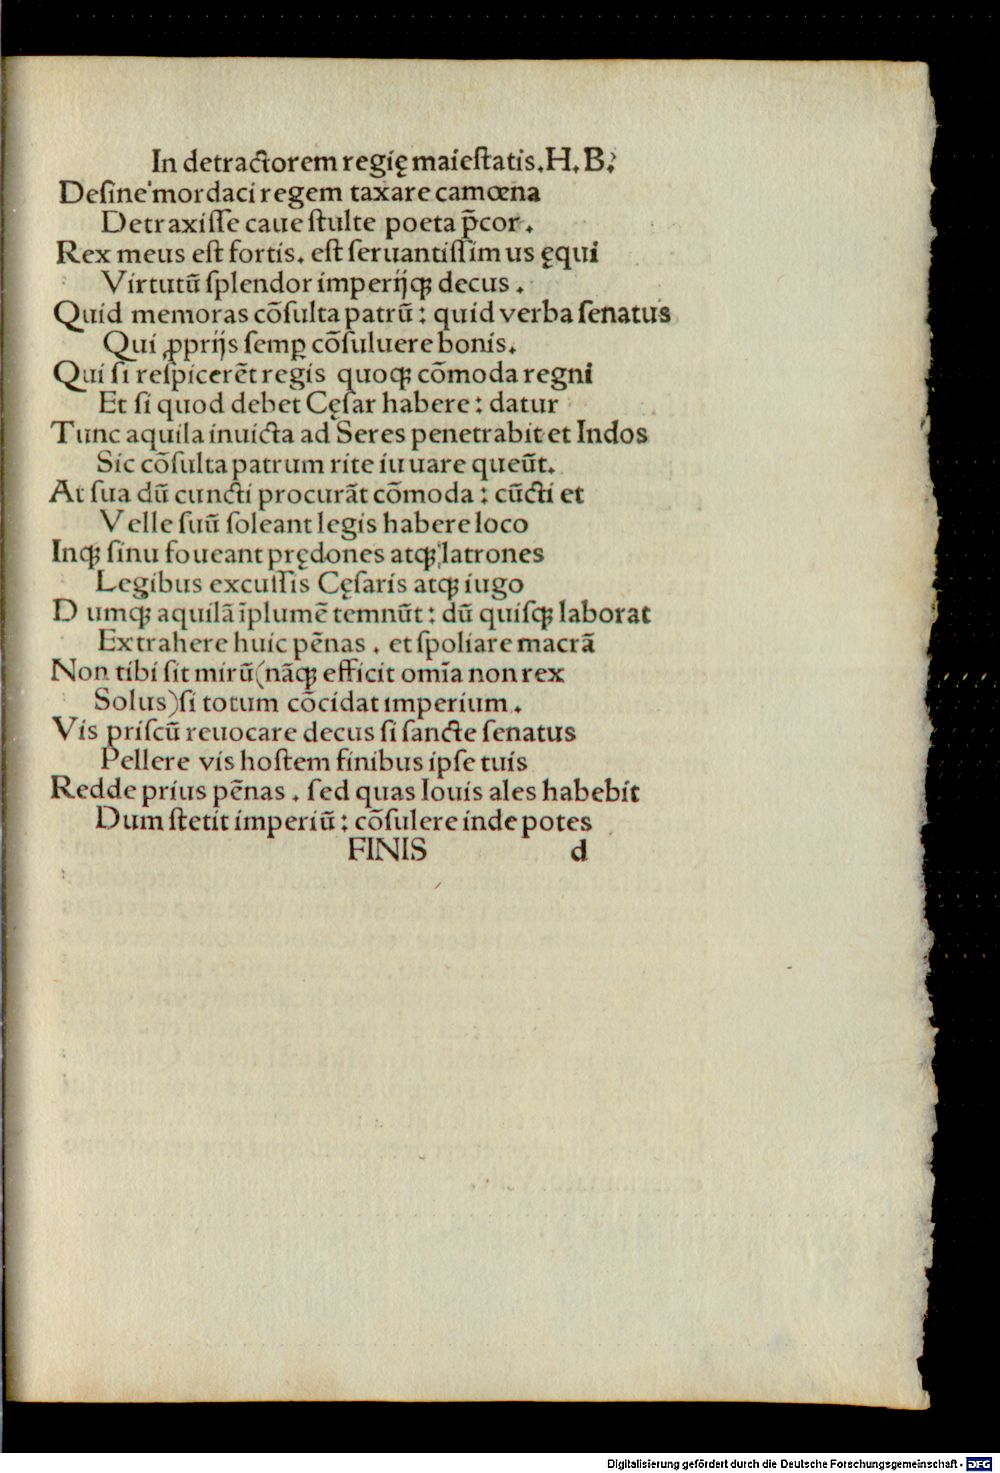 In detractorem regię maieſtatis.H.B.
Deſine mordaci regem taxare camœna
Detraxiſſe caue ſtulte poeta p̄cor.
Rex meus eſt fortis. eſt ſeruantiſſimus ęqui
Virtutū ſplendor imperijqꝫ decus.
Quid memoras cōſulta patrū: quid verba ſenatus
Qui ꝓprijs ſemꝑ cōſuluere bonis.
Qui ſi reſpicerēt regis quoqꝫ cōmoda regni
Et ſi quod debet Cęſar habere: datur
Tunc aquila inuicta ad Seres penetrabit et Indos
Sic cōſulta patrum rite iuuare queūt.
At ſua dū cuncti procurāt cōmoda: cūcti et
Velle ſuū ſoleant legis habere loco
Inqꝫ ſinu foueant prędones atqꝫ latrones
Legibus excuſſis Cęſaris atqꝫ iugo
Dumqꝫ aquilā īplumē temnūt: dū quiſqꝫ laborat
Extrahere huic pēnas. et ſpoliare macrā
Non tibi ſit mirū(nāqꝫ efficit omīa non rex
Solus)ſi totum cōcidat imperium.
Vis priſcū reuocare decus ſi ſancte ſenatus
Pellere vis hoſtem finibus ipſe tuis
Redde prius pēnas. ſed quas Iouis ales habebit
Dum ſtetit imperiū: cōſulere inde potes
FINIS d
Digitalisierung gefördert durch die Deutsche Forschungsgemeinschaft - DFG